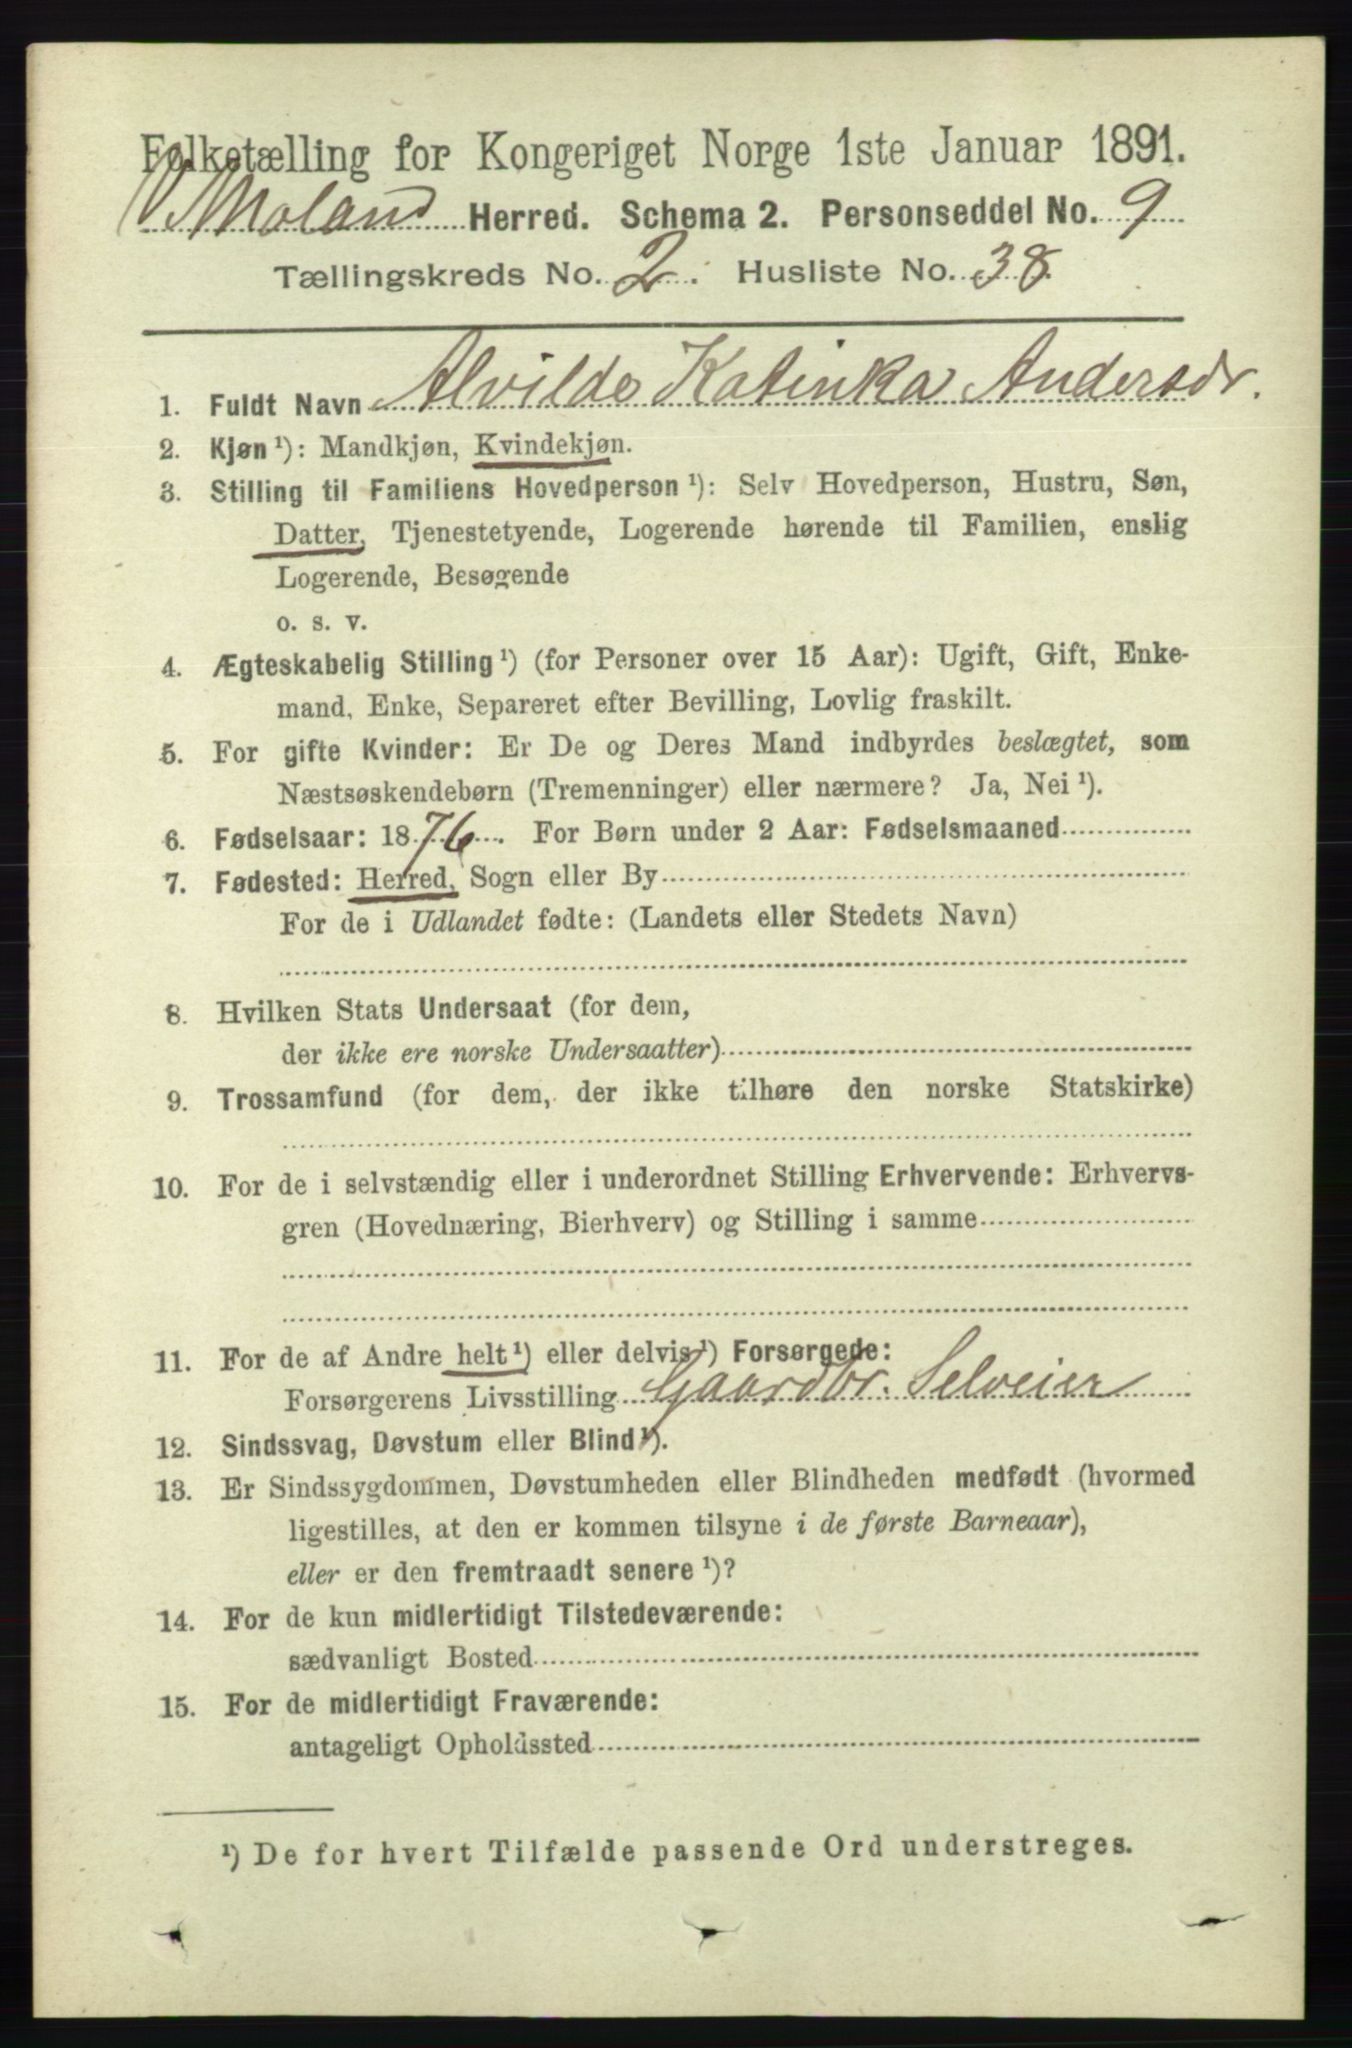 Folketælling for Kongeriget Norge 1ste Januar 1891.
V. Moland Herred. Schema 2. Personseddel No. 9
Tællingskreds No. 2. Husliste No. 38
1. Fuldt Navn Alvilde Katinka Andersdr.
2. Kjøn ¹): Mandkjøn, Kvindekjøn.
3. Stilling til Familiens Hovedperson ¹): Selv Hovedperson, Hustru, Søn,
Datter, Tjenestetyende, Logerende hørende til Familien, enslig
Logerende, Besøgende
o. s. v.
4. Ægteskabelig Stilling ¹) (for Personer over 15 Aar): Ugift, Gift, Enke-
mand, Enke, Separeret efter Bevilling, Lovlig fraskilt.
5. For gifte Kvinder: Er De og Deres Mand indbyrdes beslægtet, som
Næstsøskendebørn (Tremenninger) eller nærmere? Ja, Nei ¹).
6. Fødselsaar: 1876. For Børn under 2 Aar: Fødselsmaaned
7. Fødested: Herred, Sogn eller By
For de i Udlandet fødte: (Landets eller Stedets Navn)
8. Hvilken Stats Undersaat (for dem,
der ikke ere norske Undersaatter)
9. Trossamfund (for dem, der ikke tilhøre den norske Statskirke)
10. For de i selvstændig eller i underordnet Stilling Erhvervende: Erhvervs-
gren (Hovednæring, Bierhverv) og Stilling i samme
11. For de af Andre helt ¹) eller delvis ¹) Forsørgede:
Forsørgerens Livsstilling Gaardbr. Selveier
12. Sindssvag, Døvstum eller Blind ¹).
13. Er Sindssygdommen, Døvstumheden eller Blindheden medfødt (hvormed
ligestilles, at den er kommen tilsyne i de første Barneaar),
eller er den fremtraadt senere ¹)?
14. For de kun midlertidigt Tilstedeværende:
sædvanligt Bosted
15. For de midlertidigt Fraværende:
antageligt Opholdssted
¹) De for hvert Tilfælde passende Ord understreges.